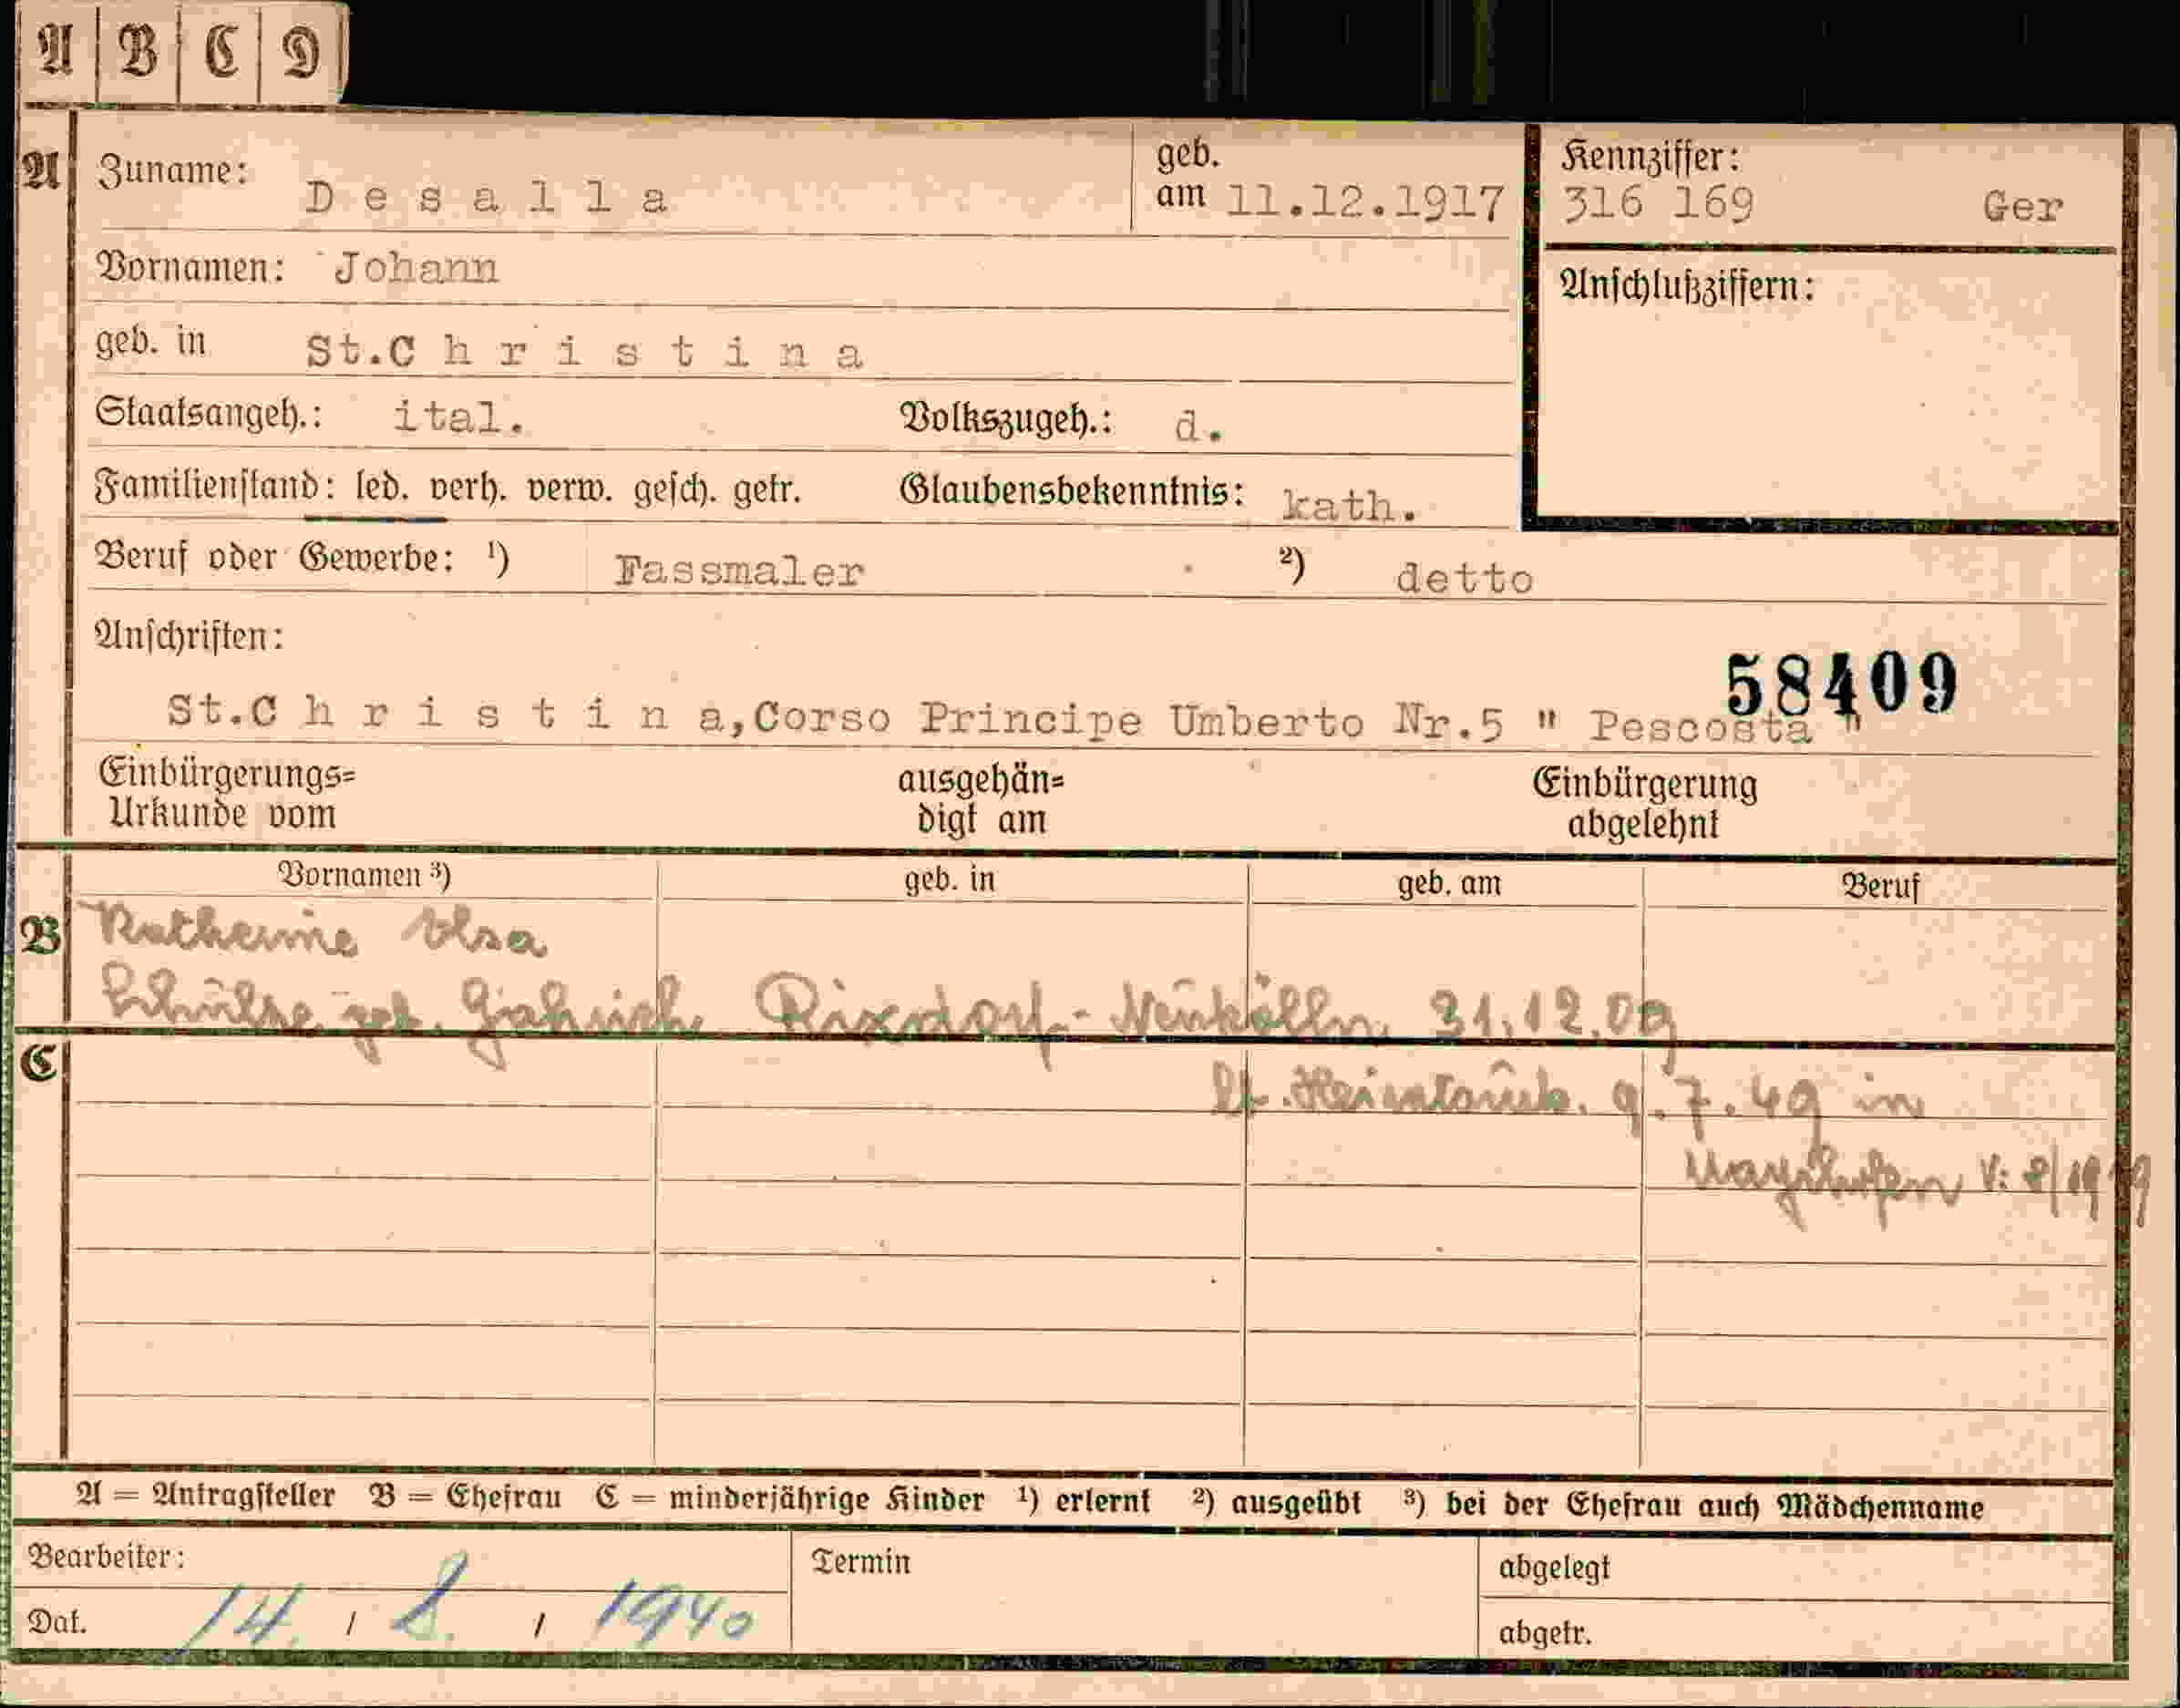 A B C D
A Zuname: Desalla geb. am 11.12.1917 Kennziffer: 316 169 Ger
Vornamen: Johann Anschlußziffern:
geb. in St.Christina
Staatsangeh.: ital. Volkszugeh.: d.
Familienstand: led. verh. verw. gesch. getr. Glaubensbekenntnis: kath.
Beruf oder Gewerbe: ¹) Fassmaler ²) detto
Anschriften:
58409
St.Christina,Corso Principe Umberto Nr.5 " Pescosta "
Einbürgerungs= ausgehän= Einbürgerung
Urkunde vom digt am abgelehnt
Vornamen ³) geb. in geb. am Beruf
B Katherine Elsa
Schulze geb. Rixdorf-Neukölln 31.12.09
C
lt. Heiratsurk. 9.7.49 in
Mayrhofen
A = Antragsteller B = Ehefrau C = minderjährige Kinder ¹) erlernt ²) ausgeübt ³) bei der Ehefrau auch Mädchenname
Bearbeiter: Termin abgelegt
Dat. 14. / 8. / 1940 abgetr.